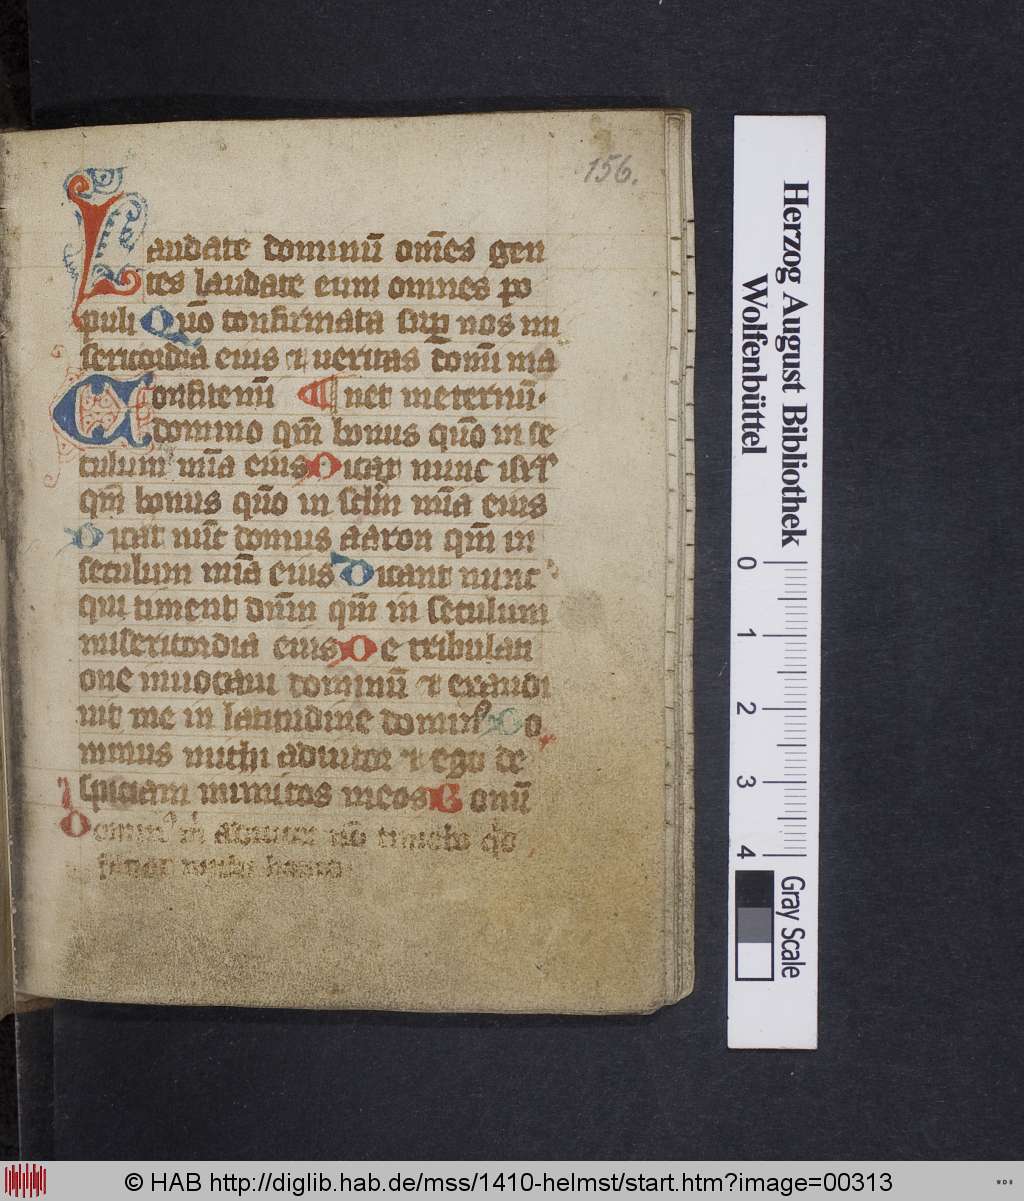 156.
Laudate dominū om̄es gen
tes laudate eum omnes po
puli Quō confirmata sup nos mi
sericordia eius et ueritas domī ma
Confitemī net meternū.
domino qm̄ bonus quō in se
culum mīa eius Dicat nunc isrl
qm̄ bonus quō in sclm̄ mīa eius
Dicat nūc domus aaron qm̄ in
seculum mīa eius Dicant nunc
qui timent dnm̄ qm̄ in seculum
misericordia eius De tribulati
one inuocaui dominū et exaudi
uit me in latitudine dominꝰ Do
minus michi adiutor et ego de
spiciam inimicos meos Bonū
Dominꝰ m̄ adiutor nō timebo qd
faciat michi homo
Herzog August Bibliothek
Wolfenbüttel
0 1 2 3 4
Gray Scale
© HAB http://diglib.hab.de/mss/1410-helmst/start.htm?image=00313